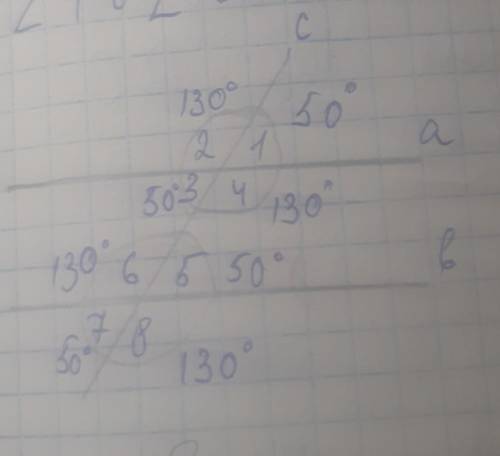 c
130° 50°
2 1 a
50° 3 4 130°
130° 6 5 50° b
7 8
50° 130°